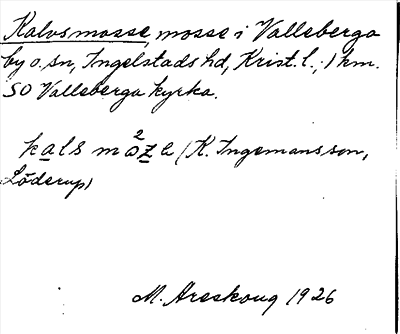 Kalvsmosse, mosse i Valleberga
by o. sn, Ingelstads hd, Krist. l., 1 km.
SO Valleberga kyrka.
kals mɷ²zɐ (K. Ingemansson,
Löderup)
M. Areskoug 1926